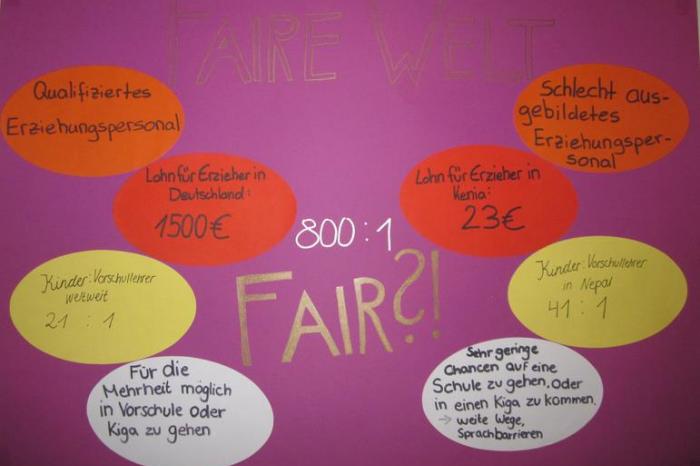 FAIRE WELT
Qualifiziertes
Erziehungspersonal
Schlecht aus-
gebildetes
Erziehungsper-
sonal
Lohn für Erzieher in
Deutschland:
1500€
Lohn für Erzieher in
Kenia:
23€
800:1
Kinder:Vorschullehrer
weltweit
21 : 1
Kinder:Vorschullehrer
in Nepal
41 : 1
FAIR?!
Für die
Mehrheit möglich
in Vorschule oder
Kiga zu gehen
Sehr geringe
Chancen auf eine
Schule zu gehen, oder
in einen Kiga zu kommen.
→ weite Wege,
Sprachbarrieren